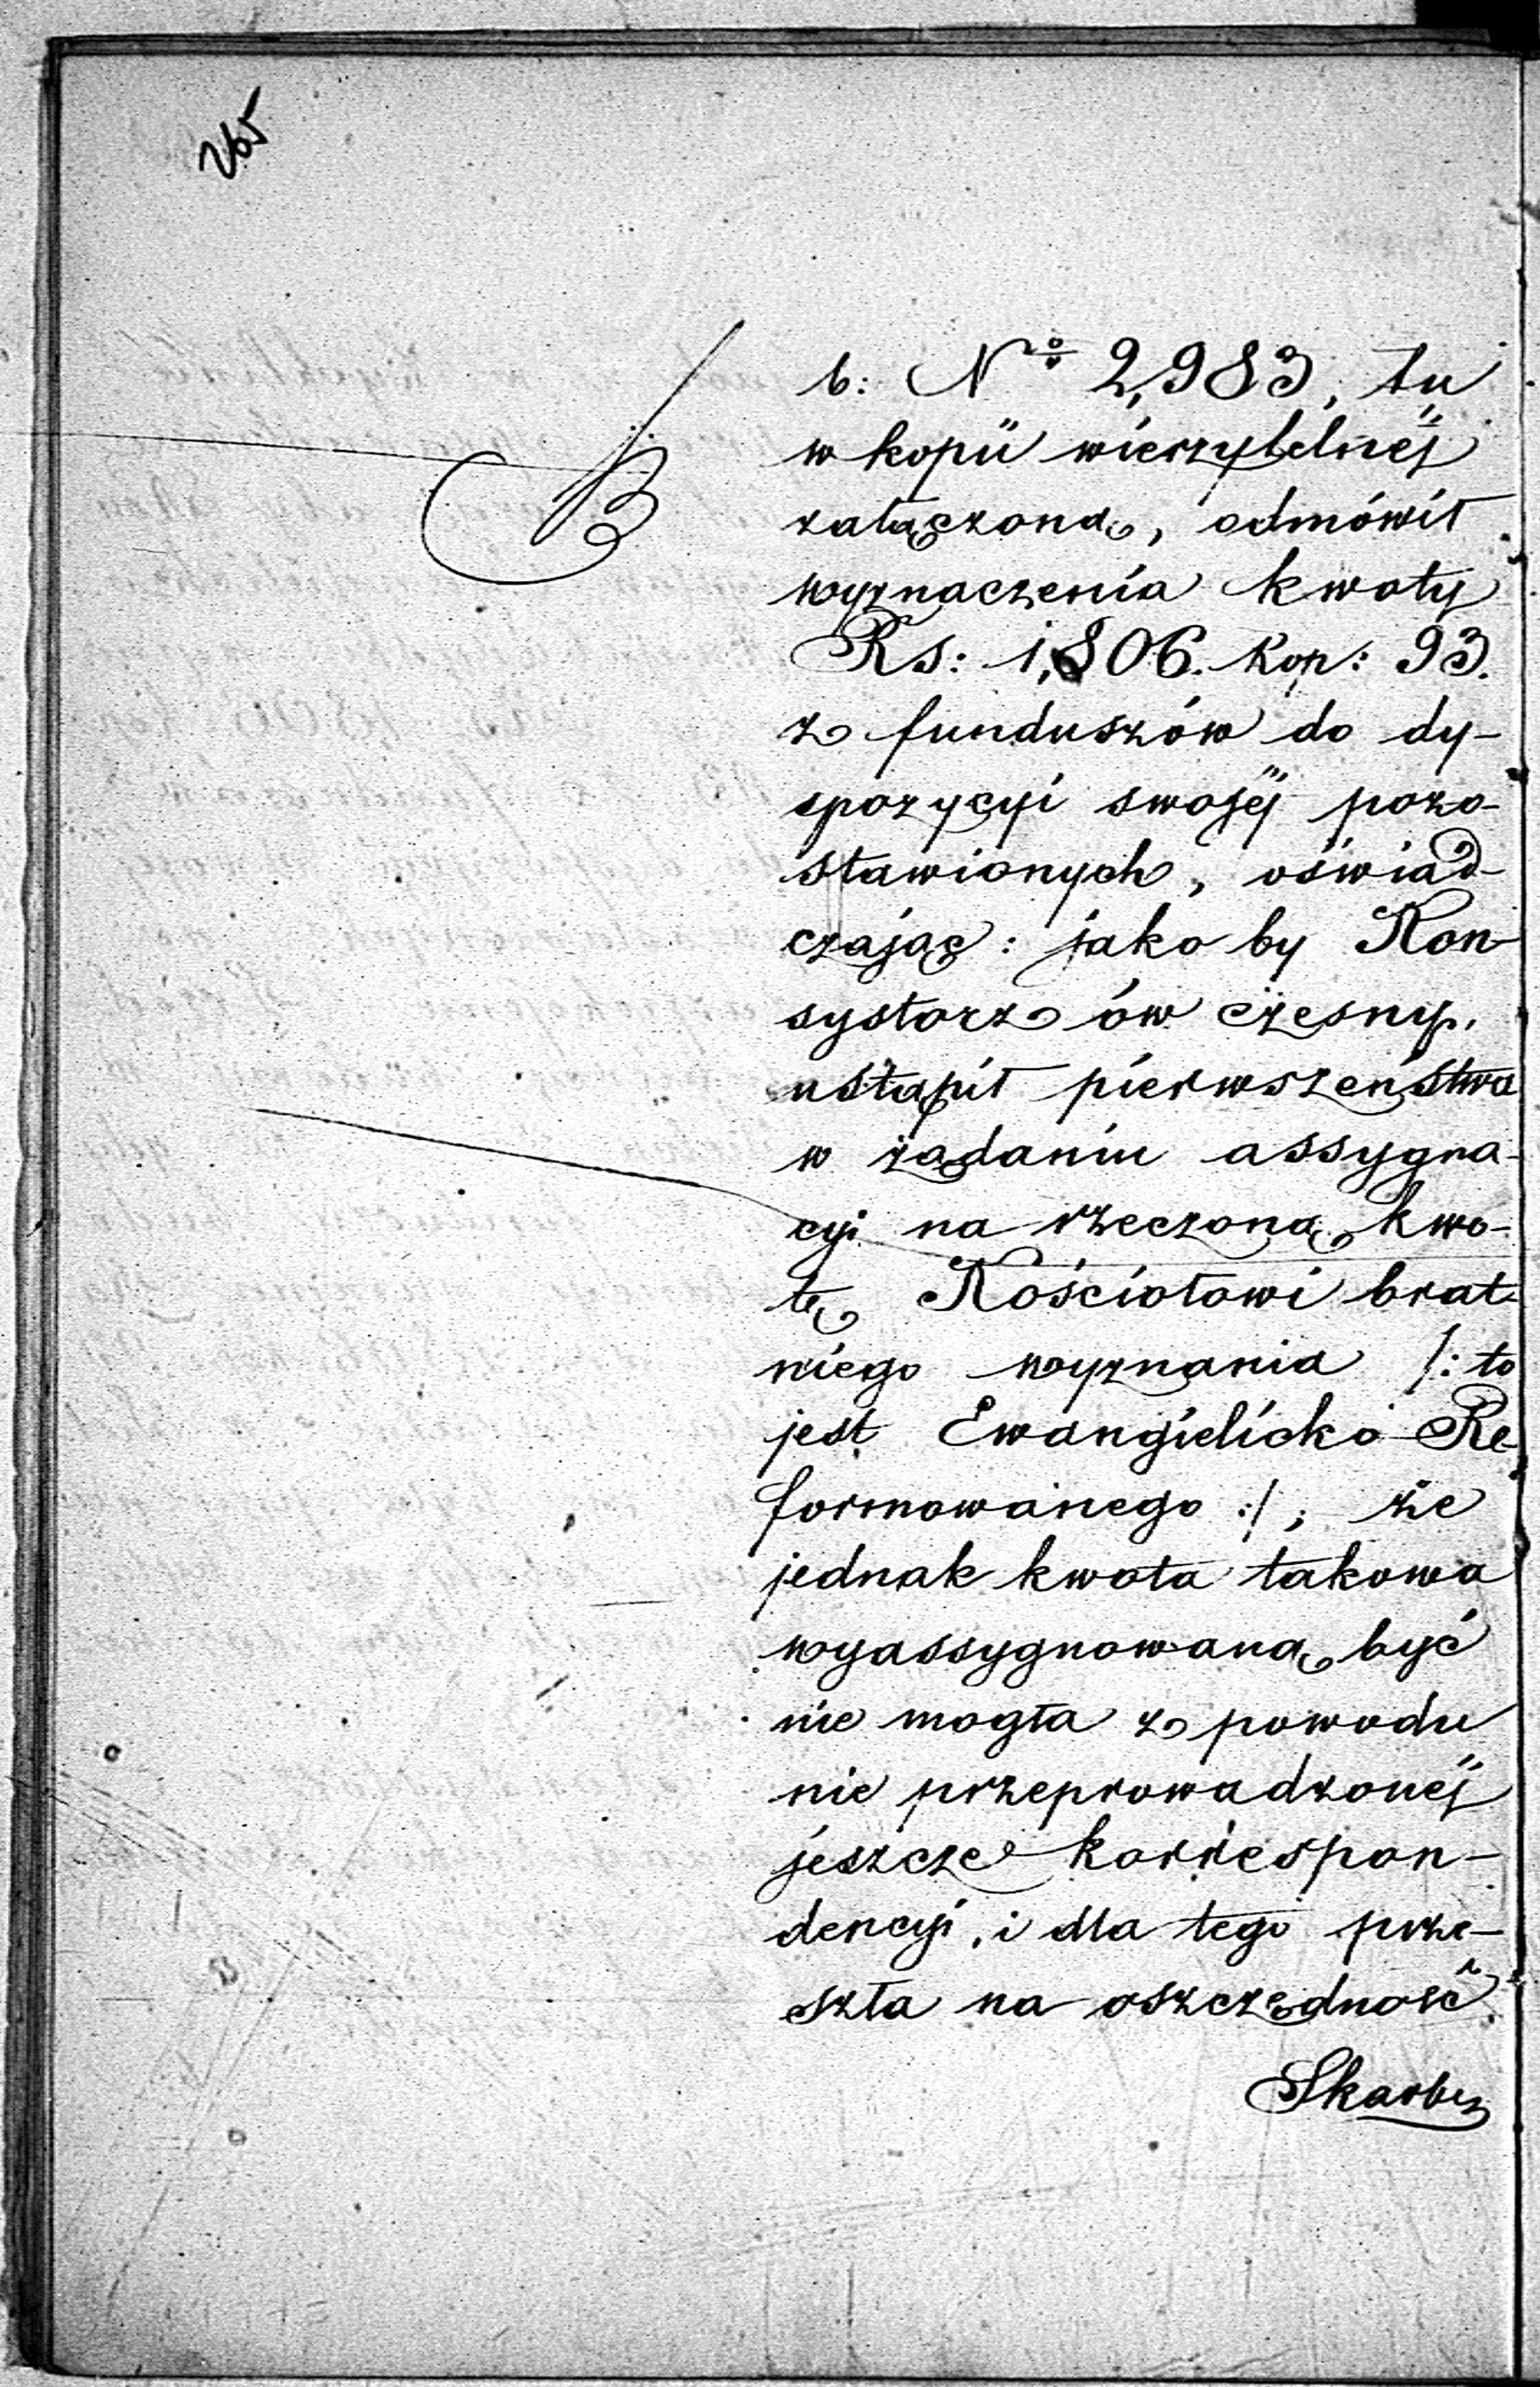 265
b: No 2,983, tu
B
w kopii wierzytelnéj
załączoną, odmówił
wyznaczenia kwoty
Rs: 1,806. kop: 93.
z funduszów do dy-
spozycyi swojéj pozo-
stawionych, oświad-
czając: jako by Kon-
systorz ów czesny,
ustąpił pierwszeństwa
w żądaniu assygna-
cyi na rzeczoną kwo-
tę Kościołowi brat-
niego wyznania /: to
jest Ewangielicko-Re-
formowanego :/; że
jednak kwota takowa
wyassygnowaną być
nie mogła z powodu
nie przeprowadzonéj
jeszcze korrespon-
dencyi, i dla tego prze-
szła na oszczędność
Skarbu